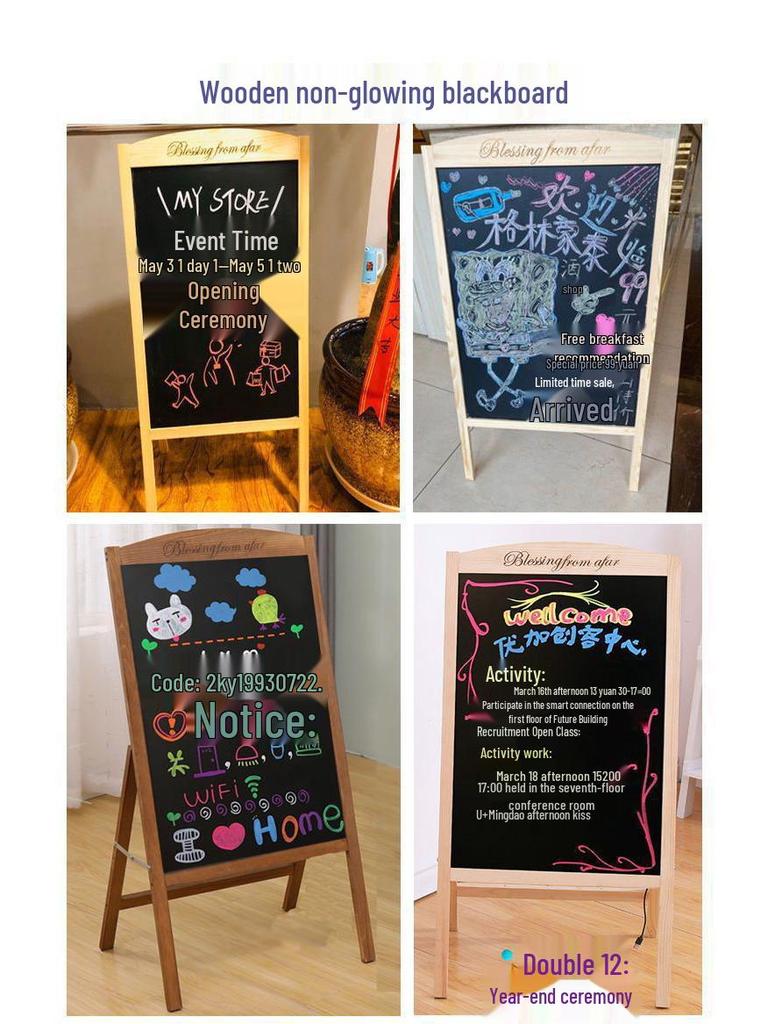 Wooden non-glowing blackboard
Blessing from afar
\MY STORE/
Event Time
May 3 1 day 1—May 5 1 two
Opening
Ceremony
Blessing from afar
欢迎光临
格林豪泰
酒
shop
99
元
Free breakfast
recommendation
Special price 99 yuan
Limited time sale,
Arrived
Blessing from afar
Code: 2ky19930722.
Notice:
WiFi
I Home
Blessing from afar
wellcome
优加创客中心.
Activity:
March 16th afternoon 13 yuan 30-17=00
Participate in the smart connection on the
first floor of Future Building
Recruitment Open Class:
Activity work:
March 18 afternoon 15200
17:00 held in the seventh-floor
conference room
U+Mingdao afternoon kiss
Double 12:
Year-end ceremony